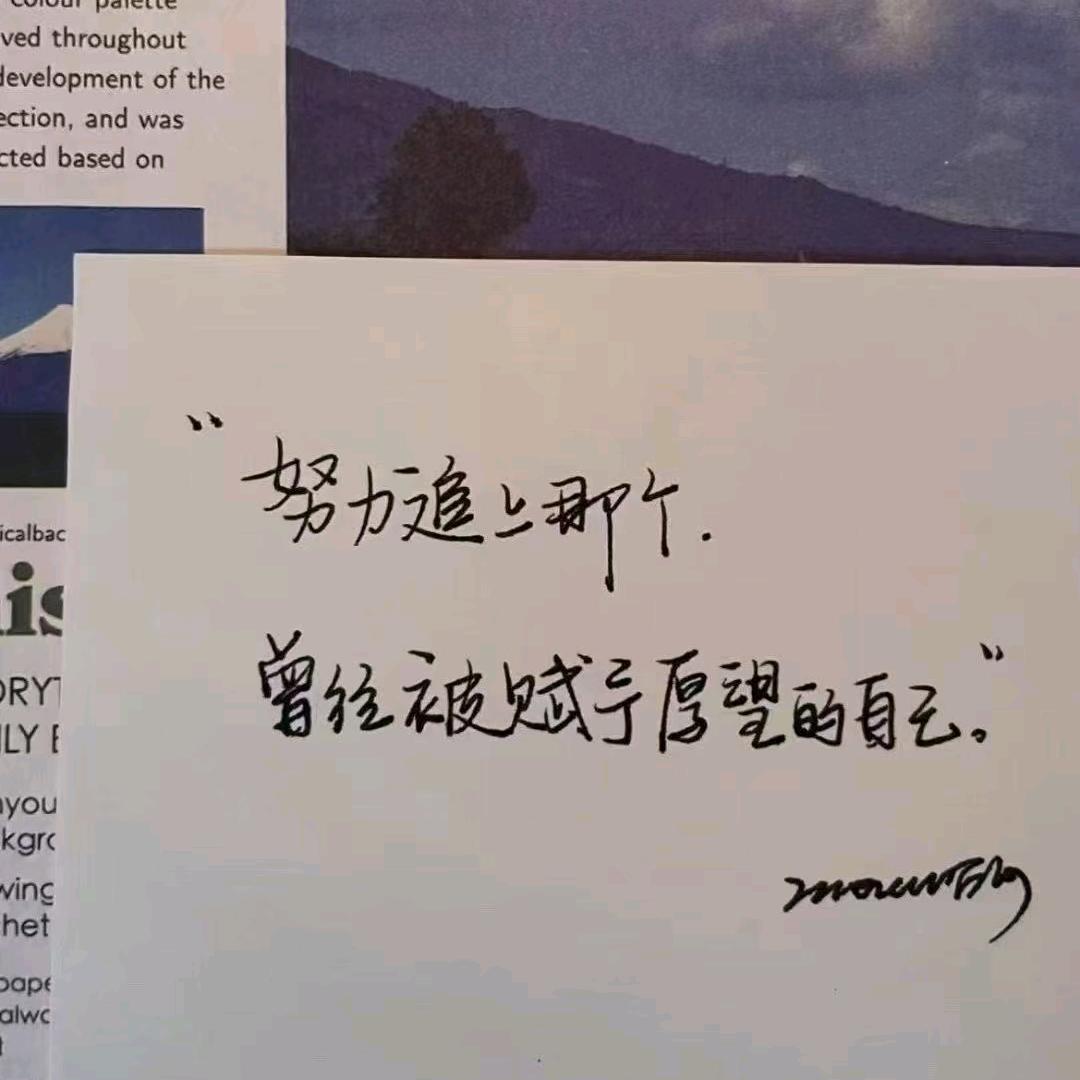 colour palette
ved throughout
development of the
ection, and was
cted based on
icalbac
is
ORY
ILY E
you
kgro
wing
het
pape
alwa
“努力追上那个.
曾经被赋予厚望的自己。”